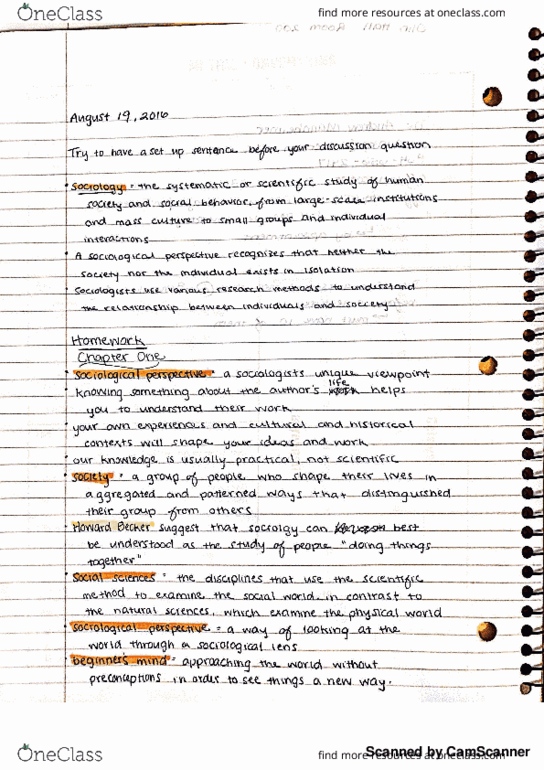 OneClass
find more resources at oneclass.com
August 19, 2016
Try to have a set up sentence before your discussion question
• Sociology - the systematic or scientific study of human
society and social behavior, from large-scale institutions
and mass culture to small groups and individual
interactions
• A sociological perspective recognizes that neither the
society nor the individual exists in isolation
• Sociologists use various research methods to understand
the relationship between individuals and society
Homework
Chapter One
• sociological perspective - a sociologists unique viewpoint
• knowing something about the author's life helps
you to understand their work
• your own experiences and cultural and historical
contexts will shape your ideas and work
• our knowledge is usually practical, not scientific
• society - a group of people who shape their lives in
aggregated and patterned ways that distinguished
their group from others
• Howard Becker suggest that sociolgy can best
be understood as the study of people "doing things
together"
• Social sciences - the disciplines that use the scientific
method to examine the social world, in contrast to
the natural sciences, which examine the physical world
• sociological perspective - a way of looking at the
world through a sociological lens
• beginner's mind - approaching the world without
preconceptions in order to see things a new way.
OneClass
find more resources at oneclass.com
Scanned by CamScanner